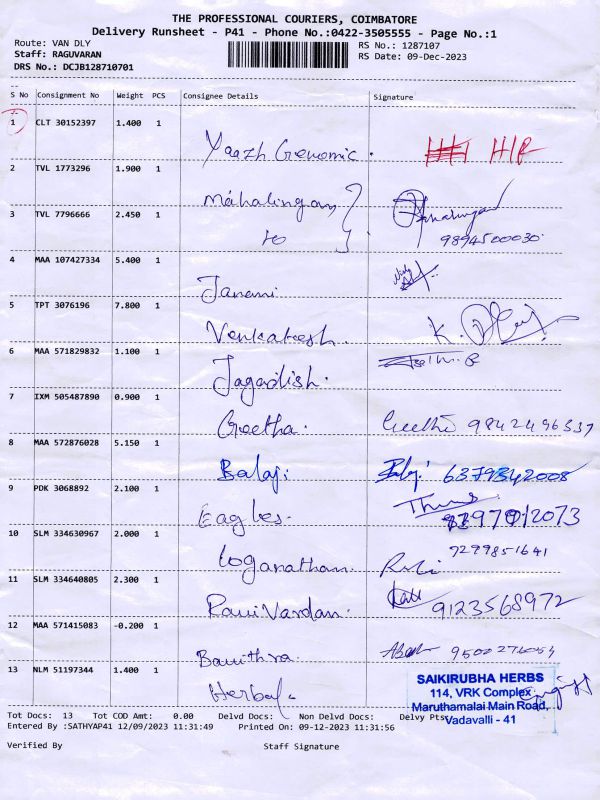 THE PROFESSIONAL COURIERS, COIMBATORE
Delivery Runsheet - P41 - Phone No.:0422-3505555 - Page No.:1
Route: VAN DLY RS No.: 1287107
Staff: RAGUVARAN RS Date: 09-Dec-2023
DRS No.: DCJB128710701
S No Consignment No Weight PCS Consignee Details Signature
1 CLT 30152397 1.400 1
Yaazh Genomic. H/R
2 TVL 1773296 1.900 1
Mahalingam
3 TVL 7796666 2.450 1
to 9894500030
4 MAA 107427334 5.400 1
Janani
5 TPT 3076196 7.800 1
Venkatesh. K.
6 MAA 571829832 1.100 1
Jagadish.
7 IXM 505487890 0.900 1
Geetha. Geetha 9842496337
8 MAA 572876028 5.150 1
Balaji Balaji 6379342008
9 PDK 3068892 2.100 1
Eagles.
10 SLM 334630967 2.000 1
Loganathan. 7299851641
11 SLM 334640805 2.300 1
Ravi Vardan. 9123568972
12 MAA 571415083 -0.200 1
Bavithra.
13 NLM 51197344 1.400 1
Herbal
SAIKIRUBHA HERBS
114, VRK Complex
Maruthamalai Main Road,
Vadavalli - 41
Tot Docs: 13 Tot COD Amt: 0.00 Delvd Docs: Non Delvd Docs: Delvy Pts:
Entered By :SATHYAP41 12/09/2023 11:31:49 Printed On: 09-12-2023 11:31:56
Verified By Staff Signature